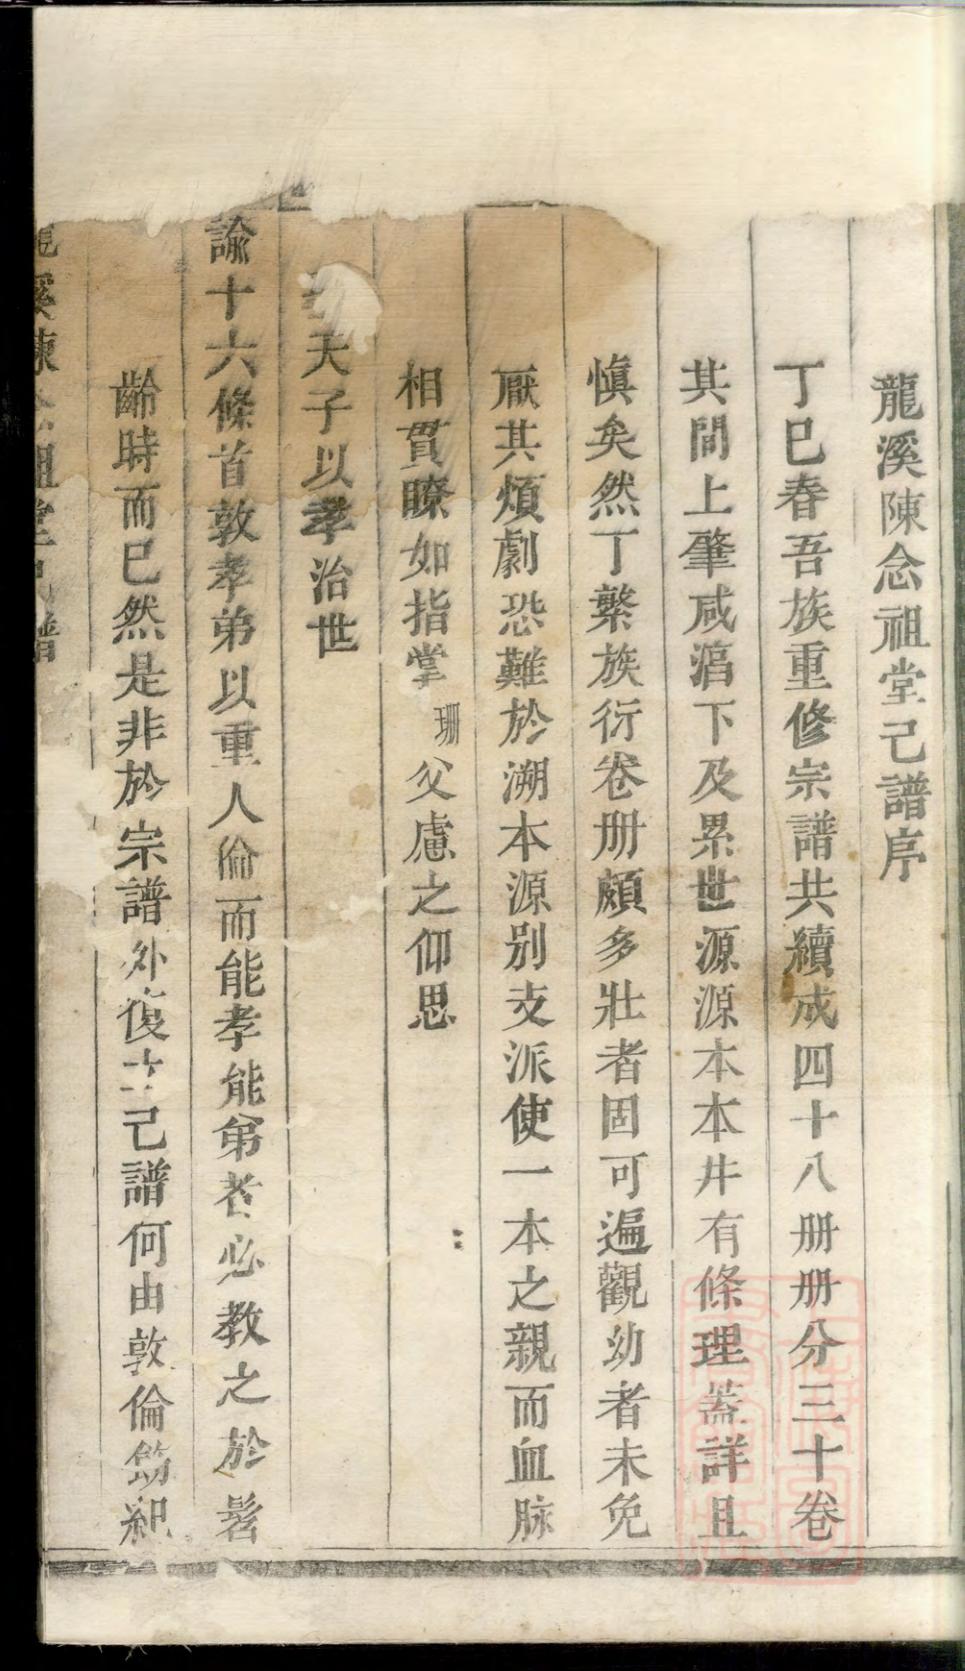 龍溪陳念祖堂己譜序
丁巳春吾族重修宗譜共續成四十八册册分三十卷
其間上肇咸淄下及累世源源本本井有條理蓋詳且
愼矣然丁繁族衍卷册頗多壯者固可遍觀幼者未免
厭其煩劇恐難於溯本源別支派使一本之親而血脉
相貫瞭如指掌珊父慮之仰思
天子以孝治世
諭十六條首敦孝弟以重人倫而能孝能弟者必教之於髫
齡時而已然是非於宗譜外復立己譜何由敦倫篤親
溪陳念祖堂己譜